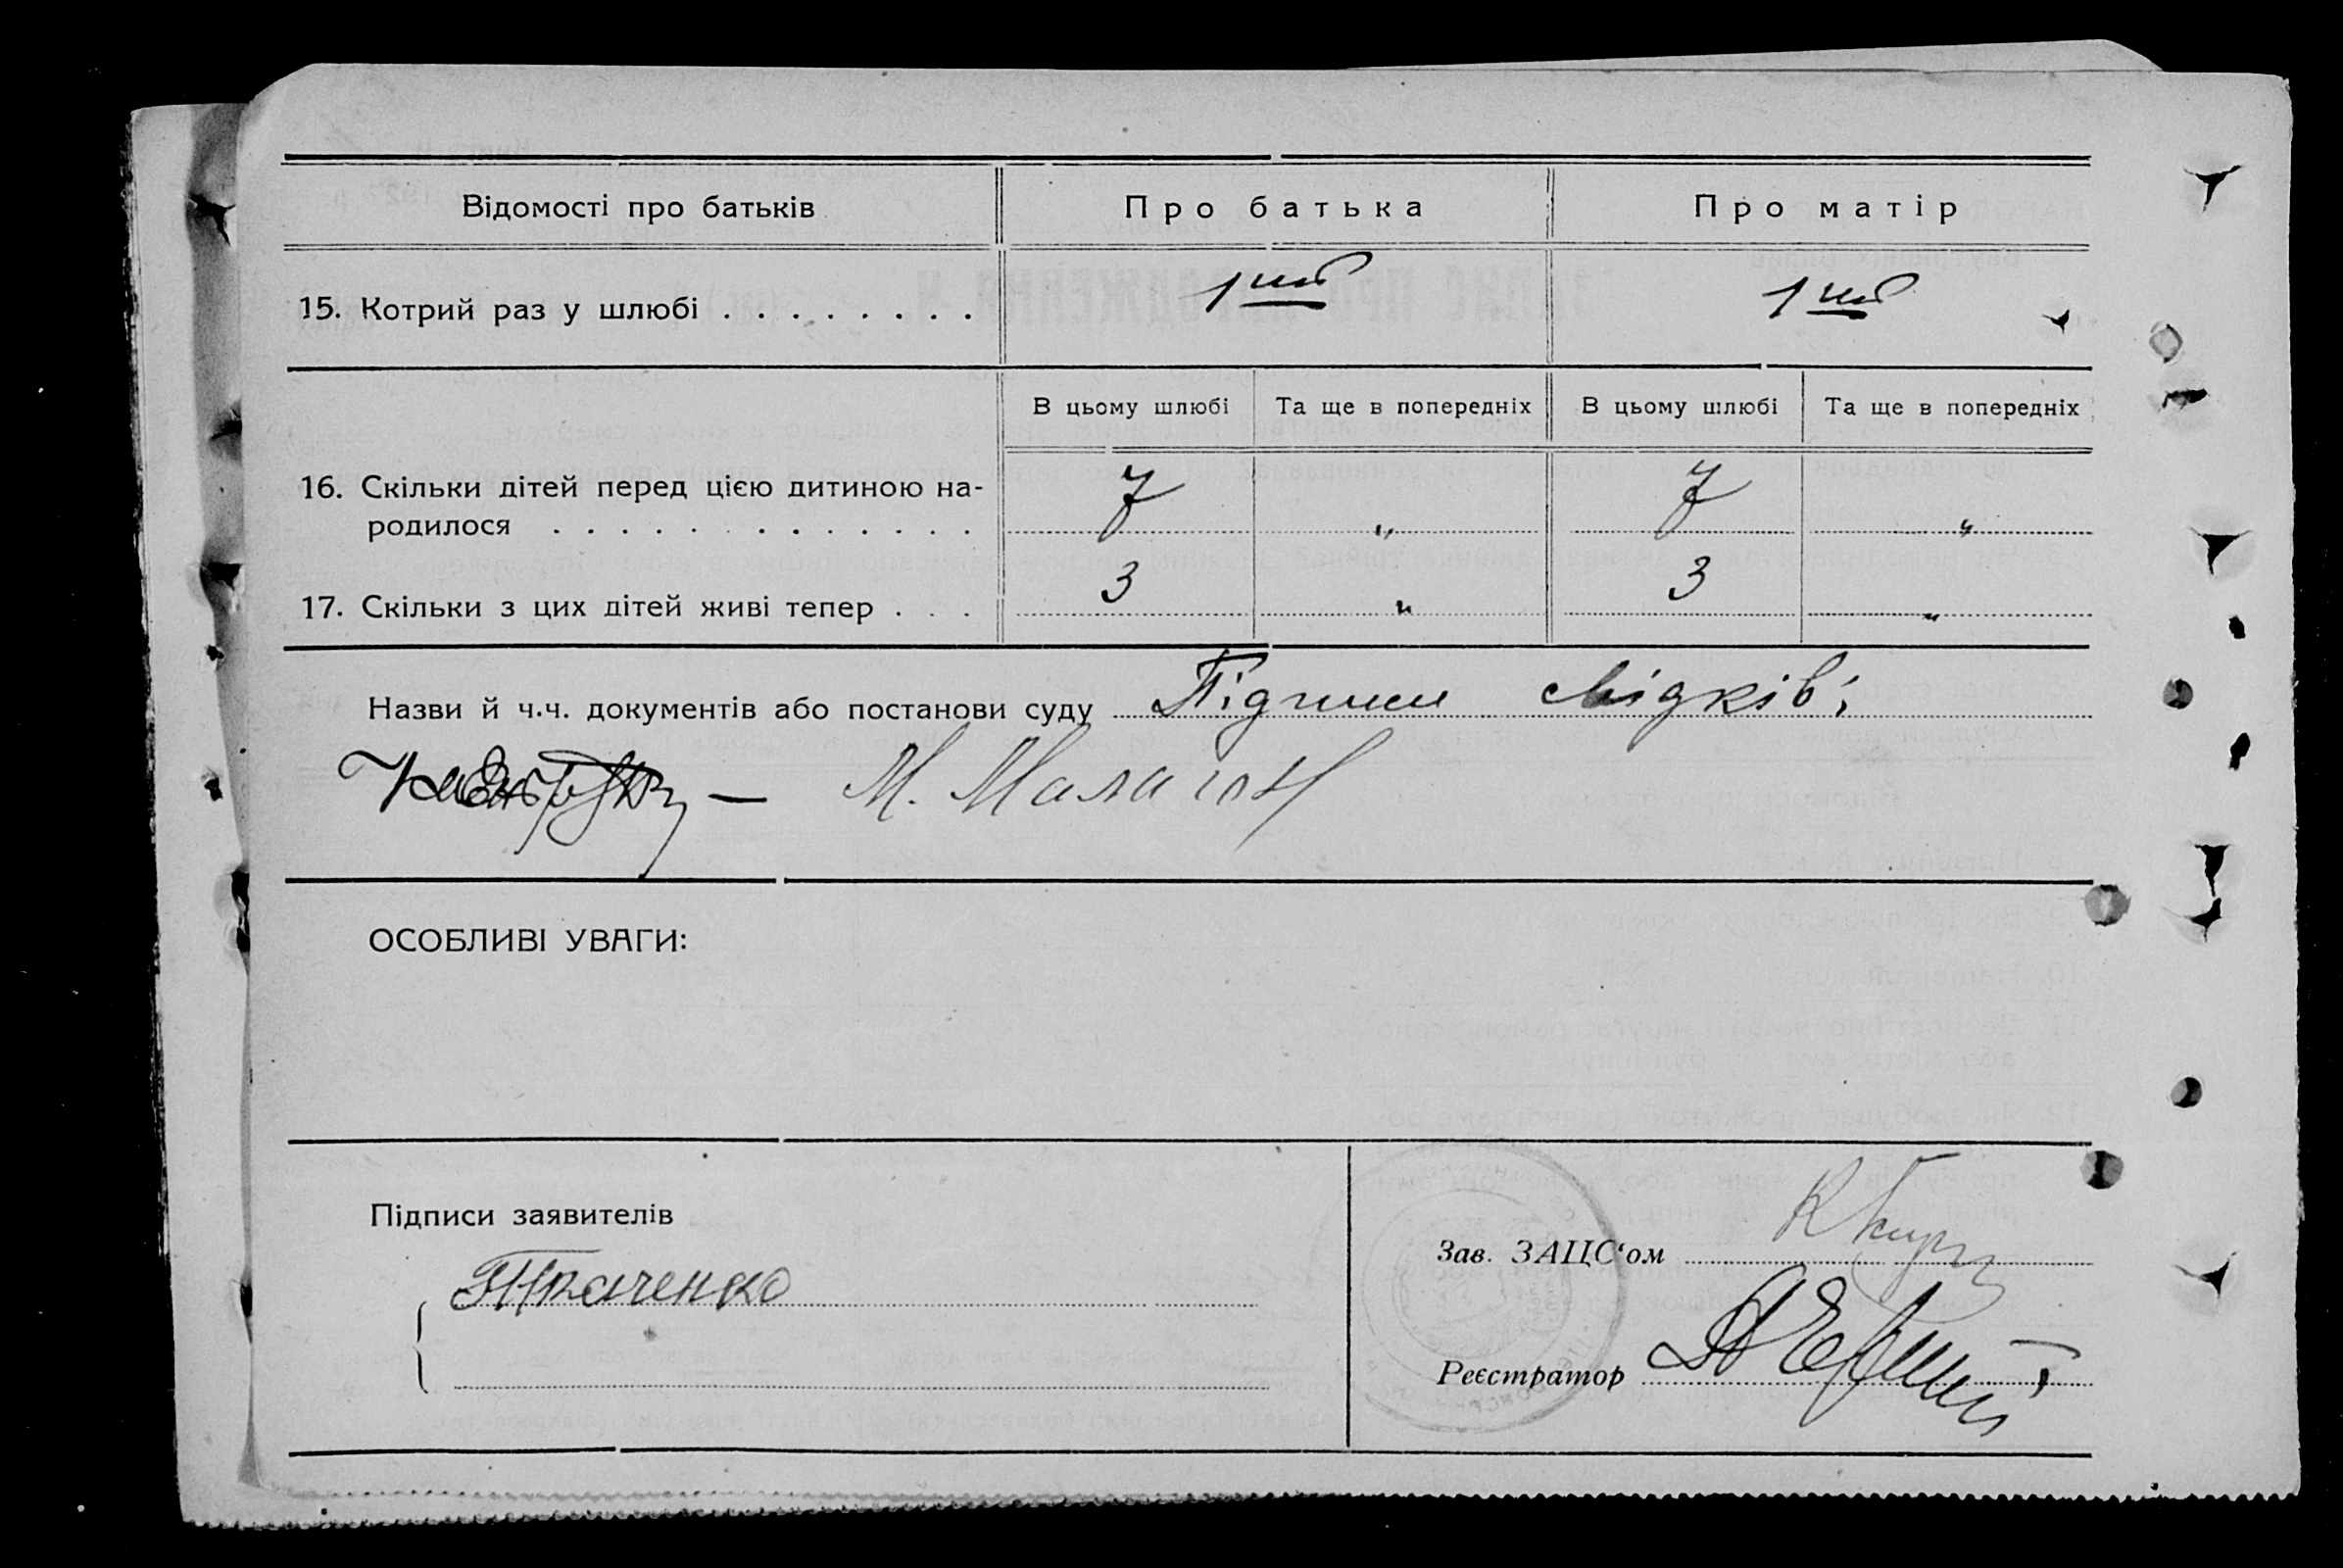 Відомості про батьків Про батька Про матір
15. Котрий раз у шлюбі . . . . . . . . 1ий 1ий
В цьому шлюбі Та ще в попередніх В цьому шлюбі Та ще в попередніх
16. Скільки дітей перед цією дитиною на-
родилося . . . . . . . . . . . . . 7 „ 7 „
17. Скільки з цих дітей живі тепер . . . 3 „ 3 „
Назви й ч.ч. документів або постанови суду Підписи свідків:
— М.
ОСОБЛИВІ УВАГИ:
Підписи заявителів
Ткаченко
Зав. ЗАЦС‘ом
Реєстратор